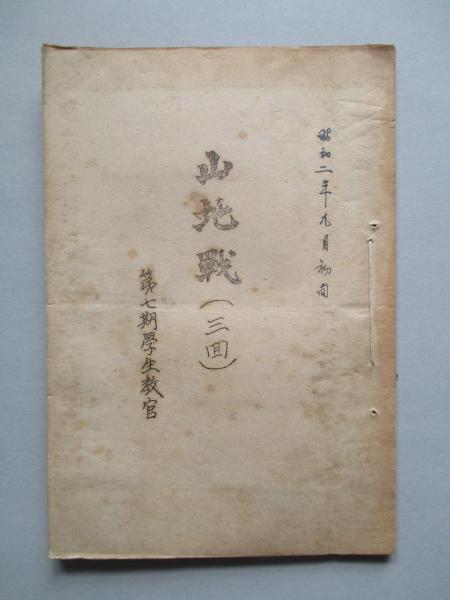 昭和二年九月初旬
山地戰（三回）
第七期學生教官